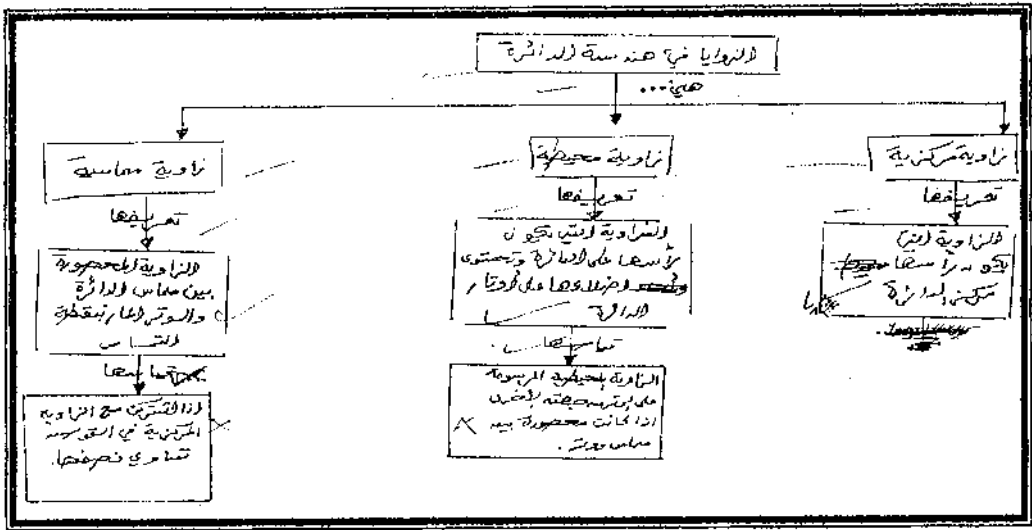 الزوايا في هندسة الدائرة
هي...
زاوية مركزية
تعريفها
الزاوية التي
يكون رأسها
مركز الدائرة
زاوية محيطية
تعريفها
الزاوية التي تكون
رأسها على الدائرة وتحتوي
أضلاعها على أوتار
الدائرة
قياسها
الزاوية المحيطية المرسومة
على الوتر من جهته الأخرى
اذا كانت محصورة بين
مماس ووتر.
زاوية مماسية
تعريفها
الزاوية المحصورة
بين مماس الدائرة
والوتر المار بنقطة
التماس
قياسها
اذا اشتركت مع الزاوية
المركزية في القوس
تساوي نصفها.